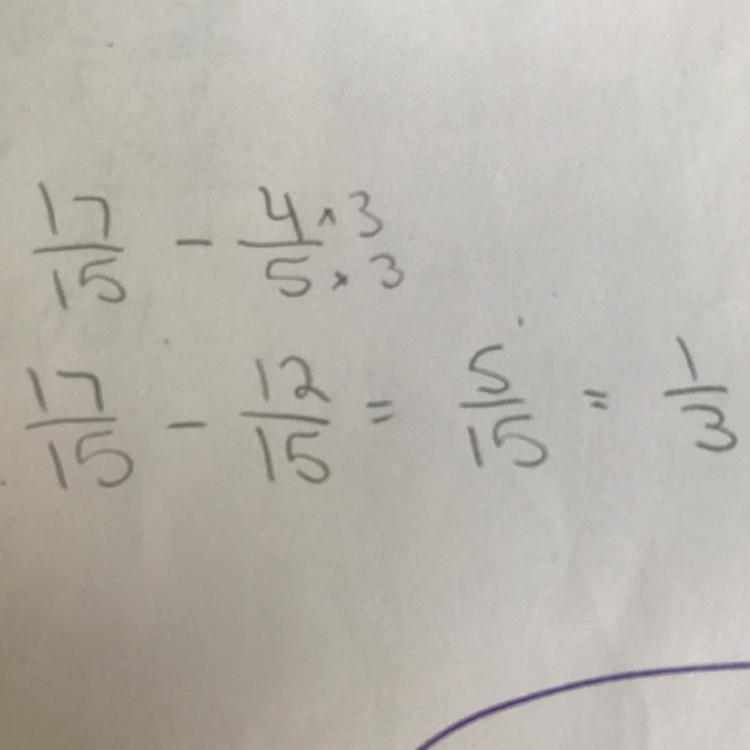 17/15 - 4 × 3/5 × 3
17/15 - 12/15 = 5/15 = 1/3